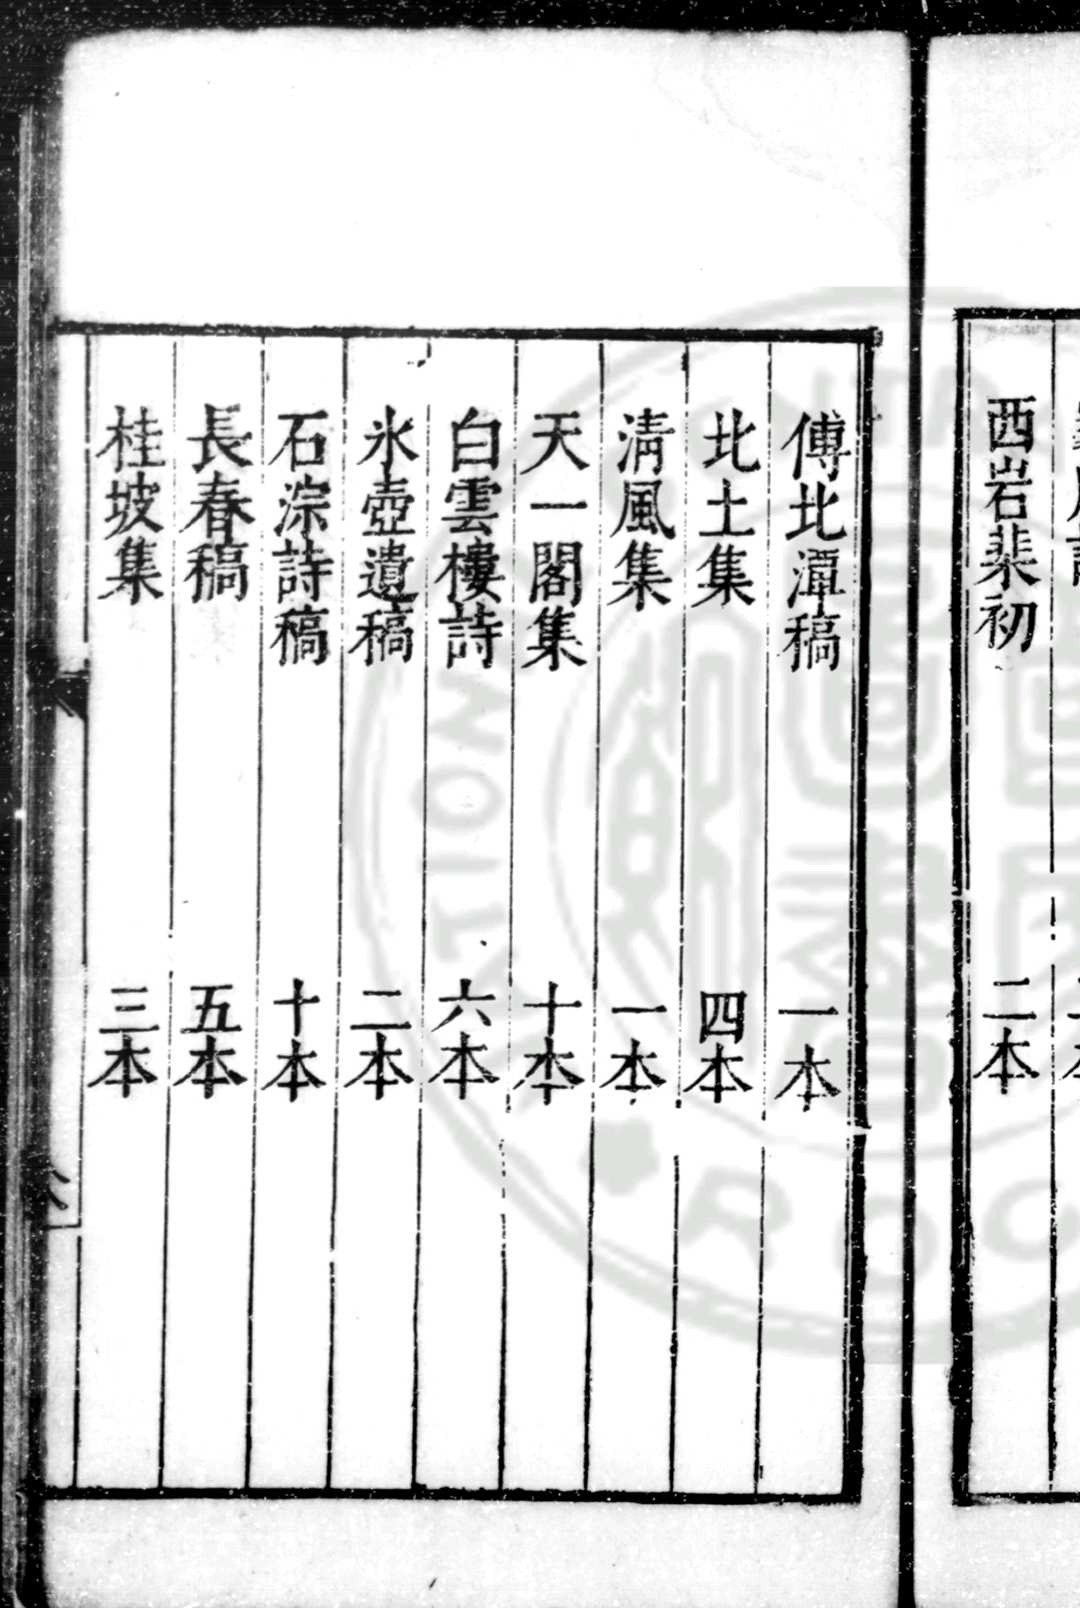 西岩棐初 二本
傅北潭稿 一本
北土集 四本
清風集 一本
天一閣集 十本
白雲樓詩 六本
氷壺遺稿 二本
石淙詩稿 十本
長春稿 五本
桂坡集 三本